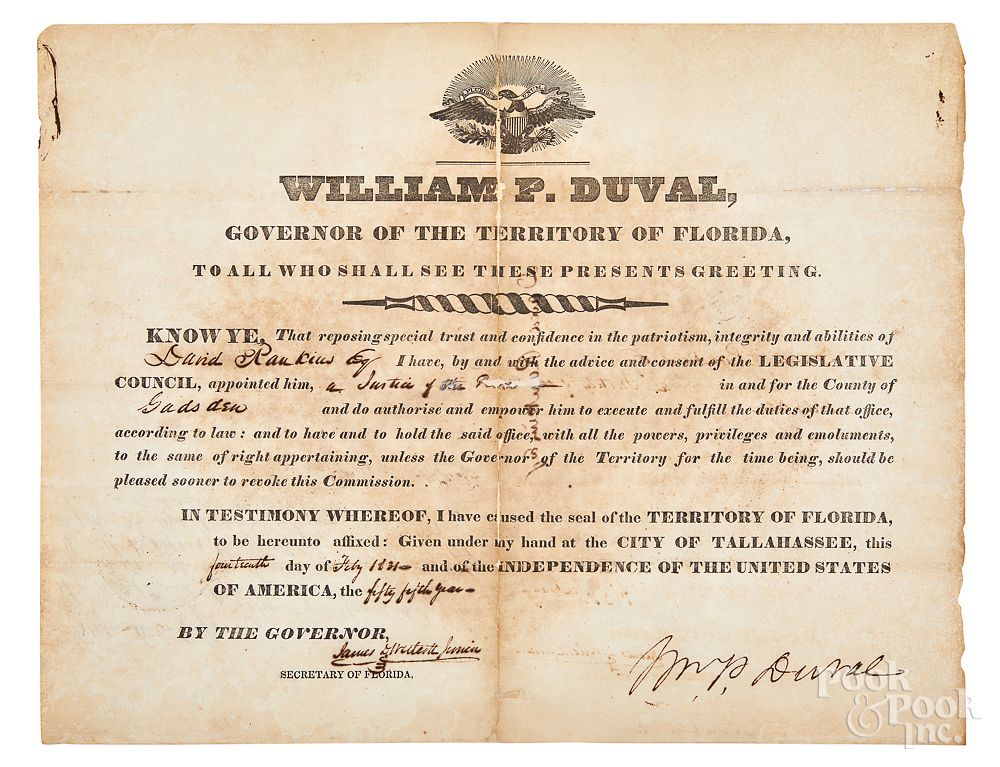 E PLURIBUS UNUM
WILLIAM P. DUVAL,
GOVERNOR OF THE TERRITORY OF FLORIDA,
TO ALL WHO SHALL SEE THESE PRESENTS GREETING.
KNOW YE, That reposing special trust and confidence in the patriotism, integrity and abilities of
David Rankins Esq I have, by and with the advice and consent of the LEGISLATIVE
COUNCIL, appointed him, a Justice of the in and for the County of
Gadsden and do authorise and empower him to execute and fulfill the duties of that office,
according to law: and to have and to hold the said office, with all the powers, privileges and emoluments,
to the same of right appertaining, unless the Governor of the Territory for the time being, should be
pleased sooner to revoke this Commission.
IN TESTIMONY WHEREOF, I have caused the seal of the TERRITORY OF FLORIDA,
to be hereunto affixed: Given under my hand at the CITY OF TALLAHASSEE, this
fourteenth day of Feby 1831 and of the INDEPENDENCE OF THE UNITED STATES
OF AMERICA, the fifty fifth year
BY THE GOVERNOR,
James D Westcott Junior
SECRETARY OF FLORIDA,
Wm P. Duval
Pook
& Pook
Inc.